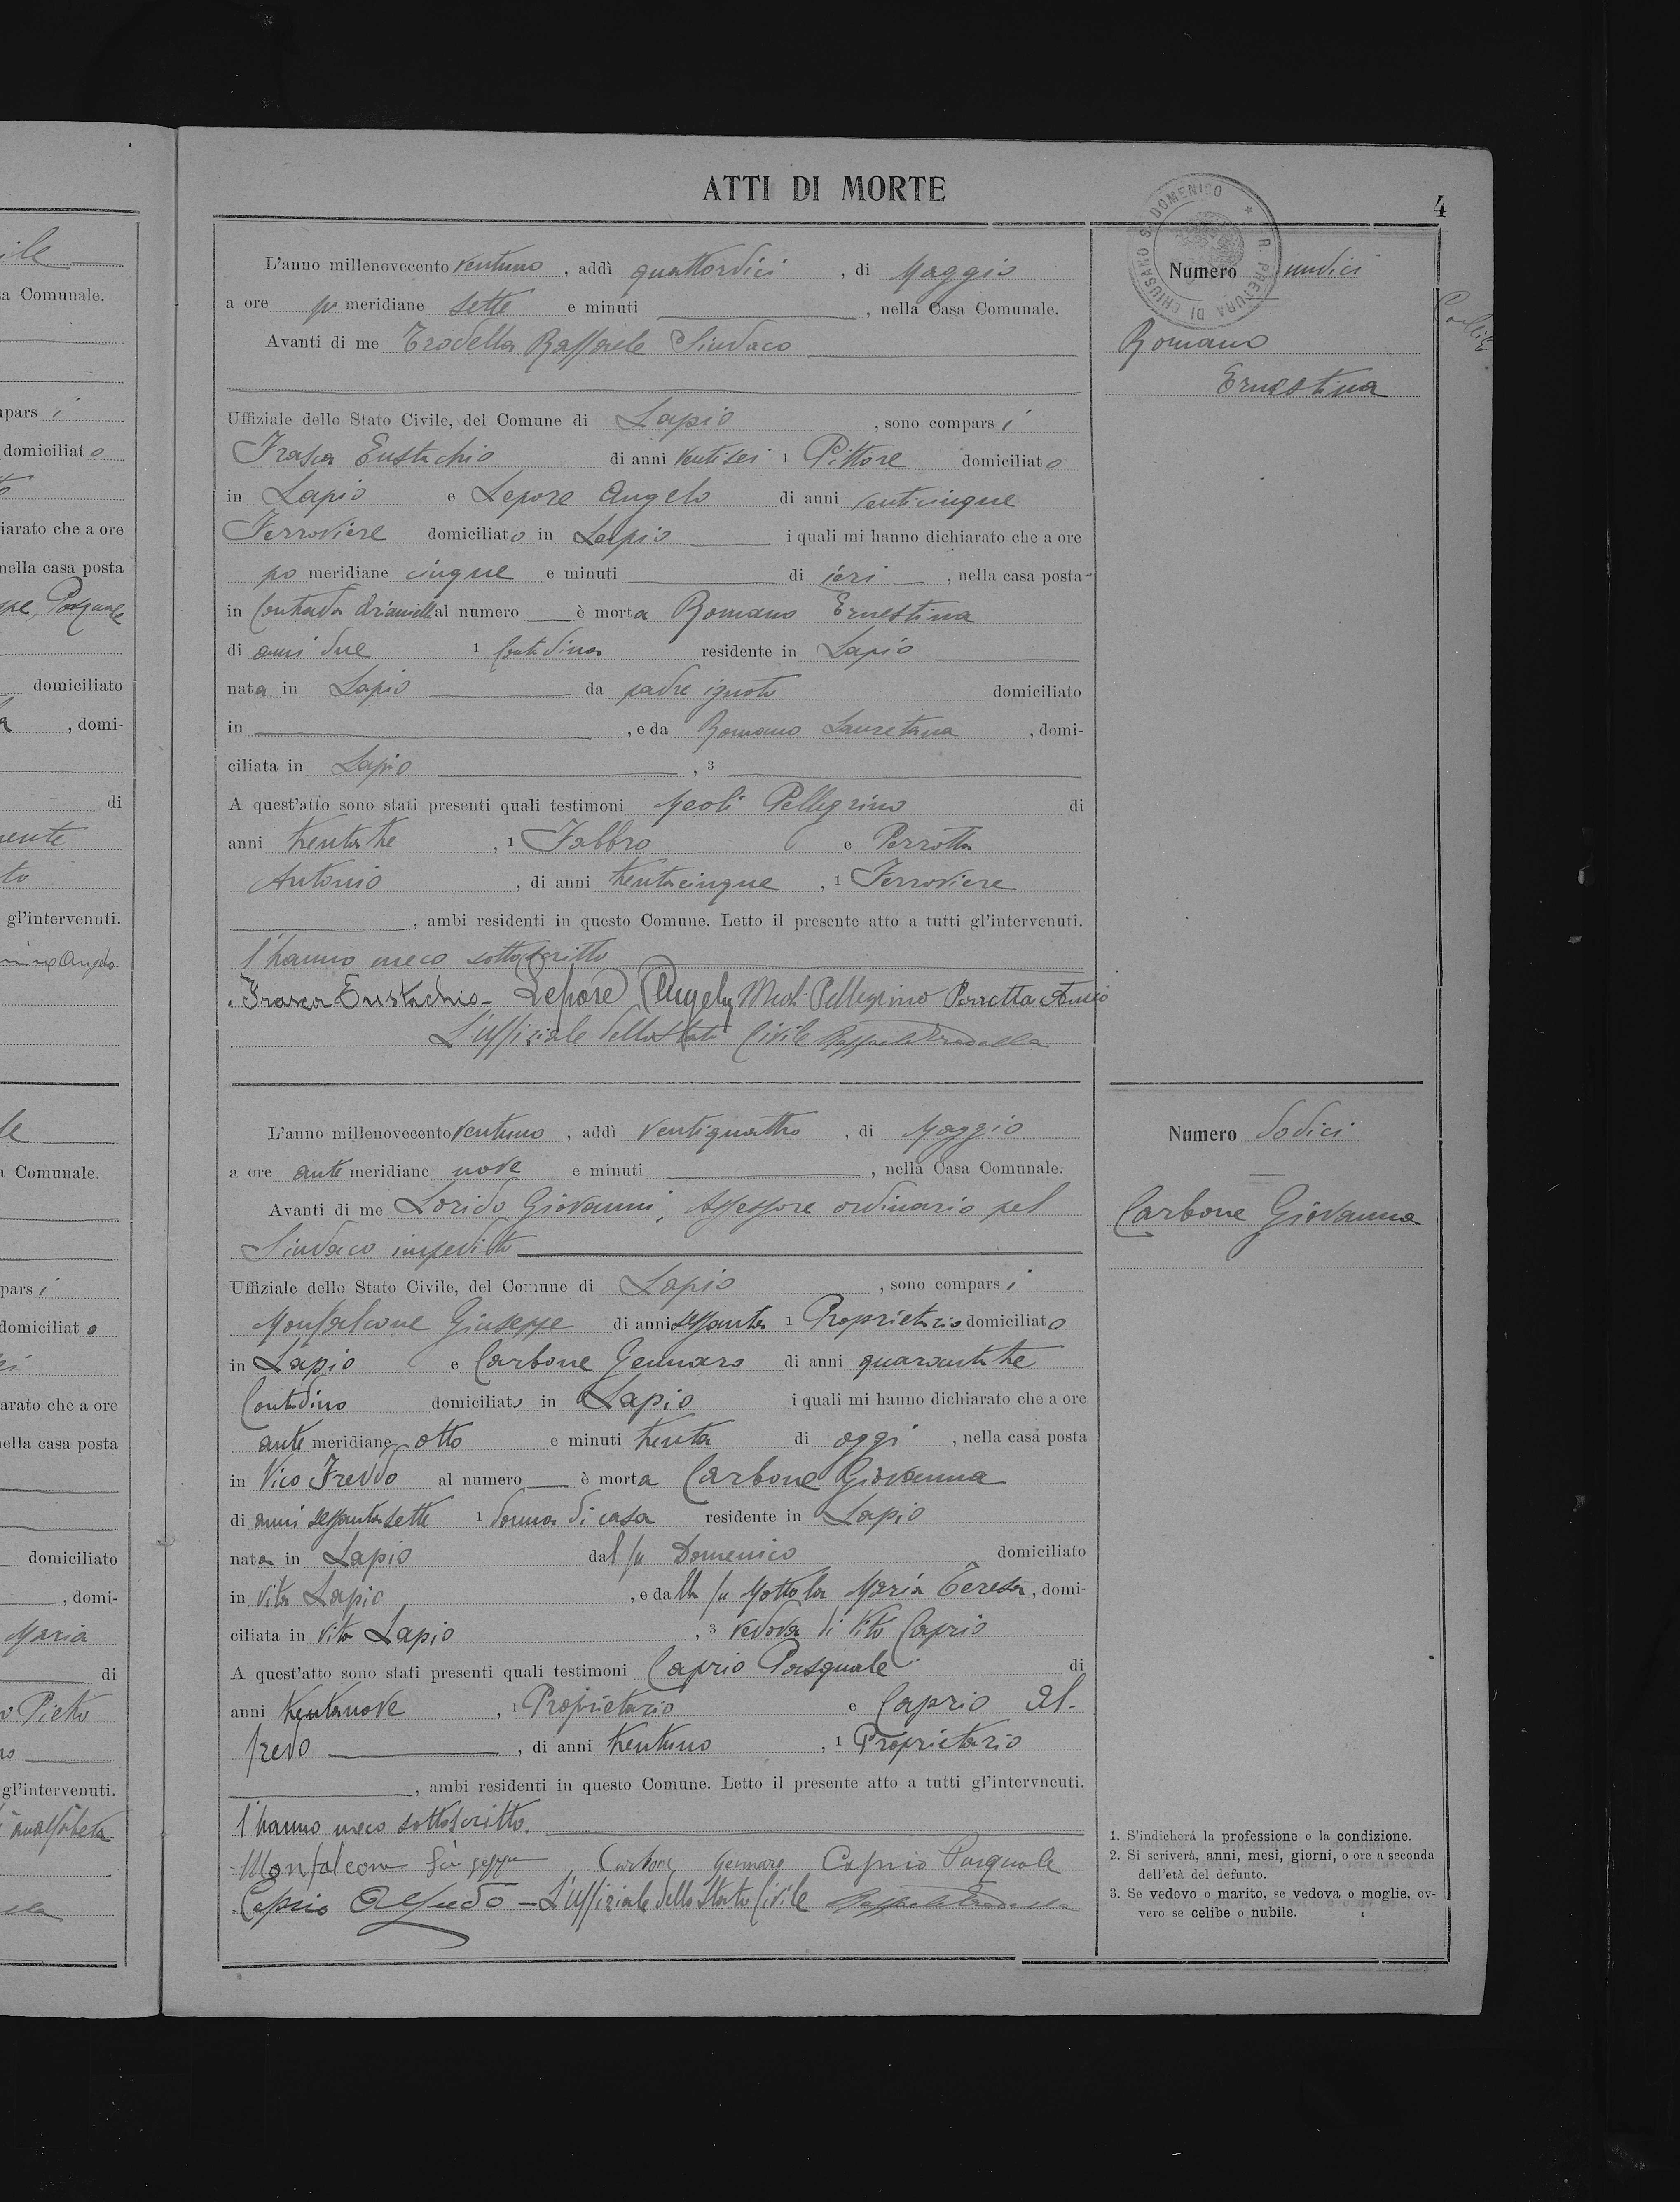 ATTI DI MORTE
4
R. PRETURA DI CHIUSANO S. DOMENICO
L'anno millenovecento ventuno, addì quattordici, di Maggio
a ore po meridiane sette e minuti, nella Casa Comunale.
Avanti di me Trodella Raffaele Sindaco
Uffiziale dello Stato Civile, del Comune di Lapio, sono comparsi
Frasca Eustachio di anni ventisei 1 Pittore domiciliato
in Lapio e Lepore Angelo di anni venticinque
Ferroviere domiciliato in Lapio i quali mi hanno dichiarato che a ore
po meridiane cinque e minuti di ieri, nella casa posta
in Contrada al numero è morta Romano Ernestina
di anni due 1 Contadina residente in Lapio
nata in Lapio da padre ignoto domiciliato
in, e da Romano Lauretana, domi-
ciliata in Lapio, 3
A quest'atto sono stati presenti quali testimoni Meoli Pellegrino di
anni trentatre, 1 Fabbro e Perrotta
Antonio, di anni trentacinque, 1 Ferroviere
, ambi residenti in questo Comune. Letto il presente atto a tutti gl'intervenuti.
l'hanno meco sottoscritto
Frasca Eustachio - Lepore Angelo Meoli Pellegrino Perrotta
L'uffiziale dello Stato Civile Raffaele Trodella
Numero undici
Romano
Ernestina
L'anno millenovecento ventuno, addì ventiquattro, di Maggio
a ore ante meridiane nove e minuti, nella Casa Comunale.
Avanti di me Lorido Giovanni, Assessore ordinario pel
Sindaco impedito
Uffiziale dello Stato Civile, del Comune di Lapio, sono comparsi
Monfalcone Giuseppe di anni sessanta 1 Proprietario domiciliato
in Lapio e Carbone Gennaro di anni quarantatre
Contadino domiciliato in Lapio i quali mi hanno dichiarato che a ore
ante meridiane otto e minuti trenta di oggi, nella casa posta
in Vico Freddo al numero è morta Carbone Giovanna
di anni sessantasette 1 donna di casa residente in Lapio
nata in Lapio dal fu Domenico domiciliato
in vita Lapio, e dalla fu Mottola Maria Teresa, domi-
ciliata in vita Lapio, 3 vedova di Vito Caprio
A quest'atto sono stati presenti quali testimoni Caprio Pasquale di
anni trentanove, 1 Proprietario e Caprio Al-
fredo, di anni trentuno, 1 Proprietario
, ambi residenti in questo Comune. Letto il presente atto a tutti gl'intervneuti.
l'hanno meco sottoscritto.
Monfalcone Giuseppe Carbone Gennaro Caprio Pasquale
Caprio Alfredo - L'uffiziale dello Stato Civile Raffaele Trodella
Numero dodici
Carbone Giovanna
1. S'indicherá la professione o la condizione.
2. Si scriverà, anni, mesi, giorni, o ore a seconda
dell'età del defunto.
3. Se vedovo o marito, se vedova o moglie, ov-
vero se celibe o nubile.